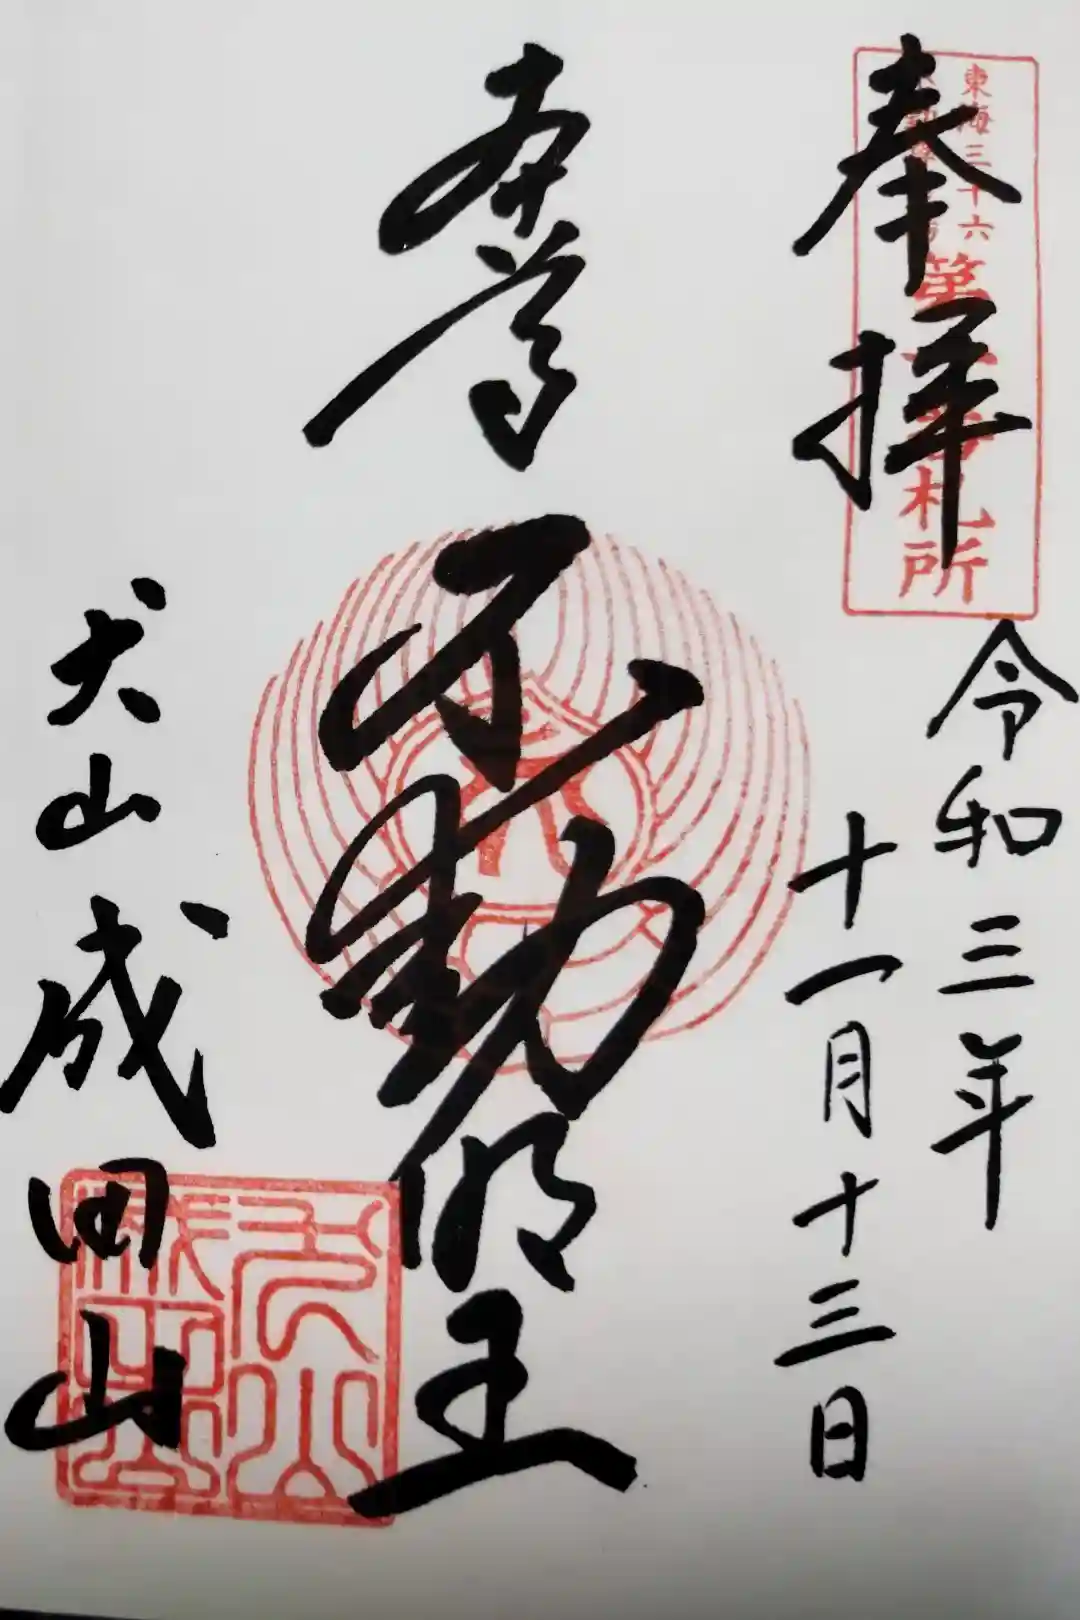 奉拝
東海三十六
第一番札所
令和三年
十一月十三日
本尊
不動明王
犬山成田山